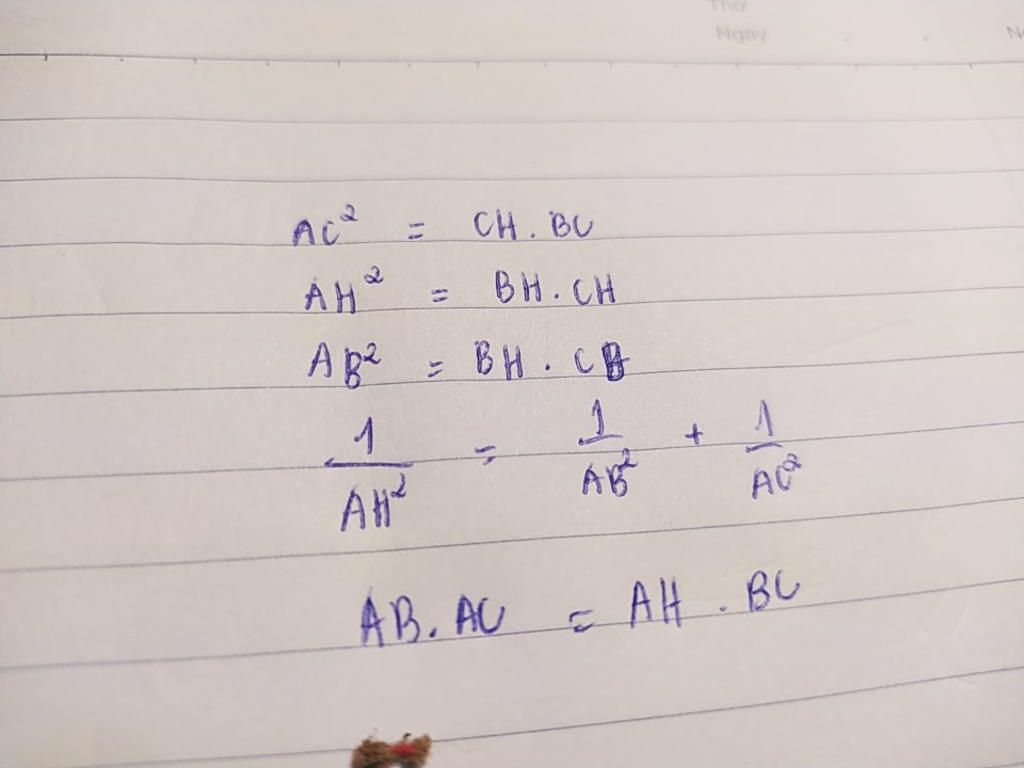 Thứ
Ngày
AC² = CH . BC
AH² = BH . CH
AB² = BH . CB
1/AH² = 1/AB² + 1/AC²
AB . AC = AH . BC